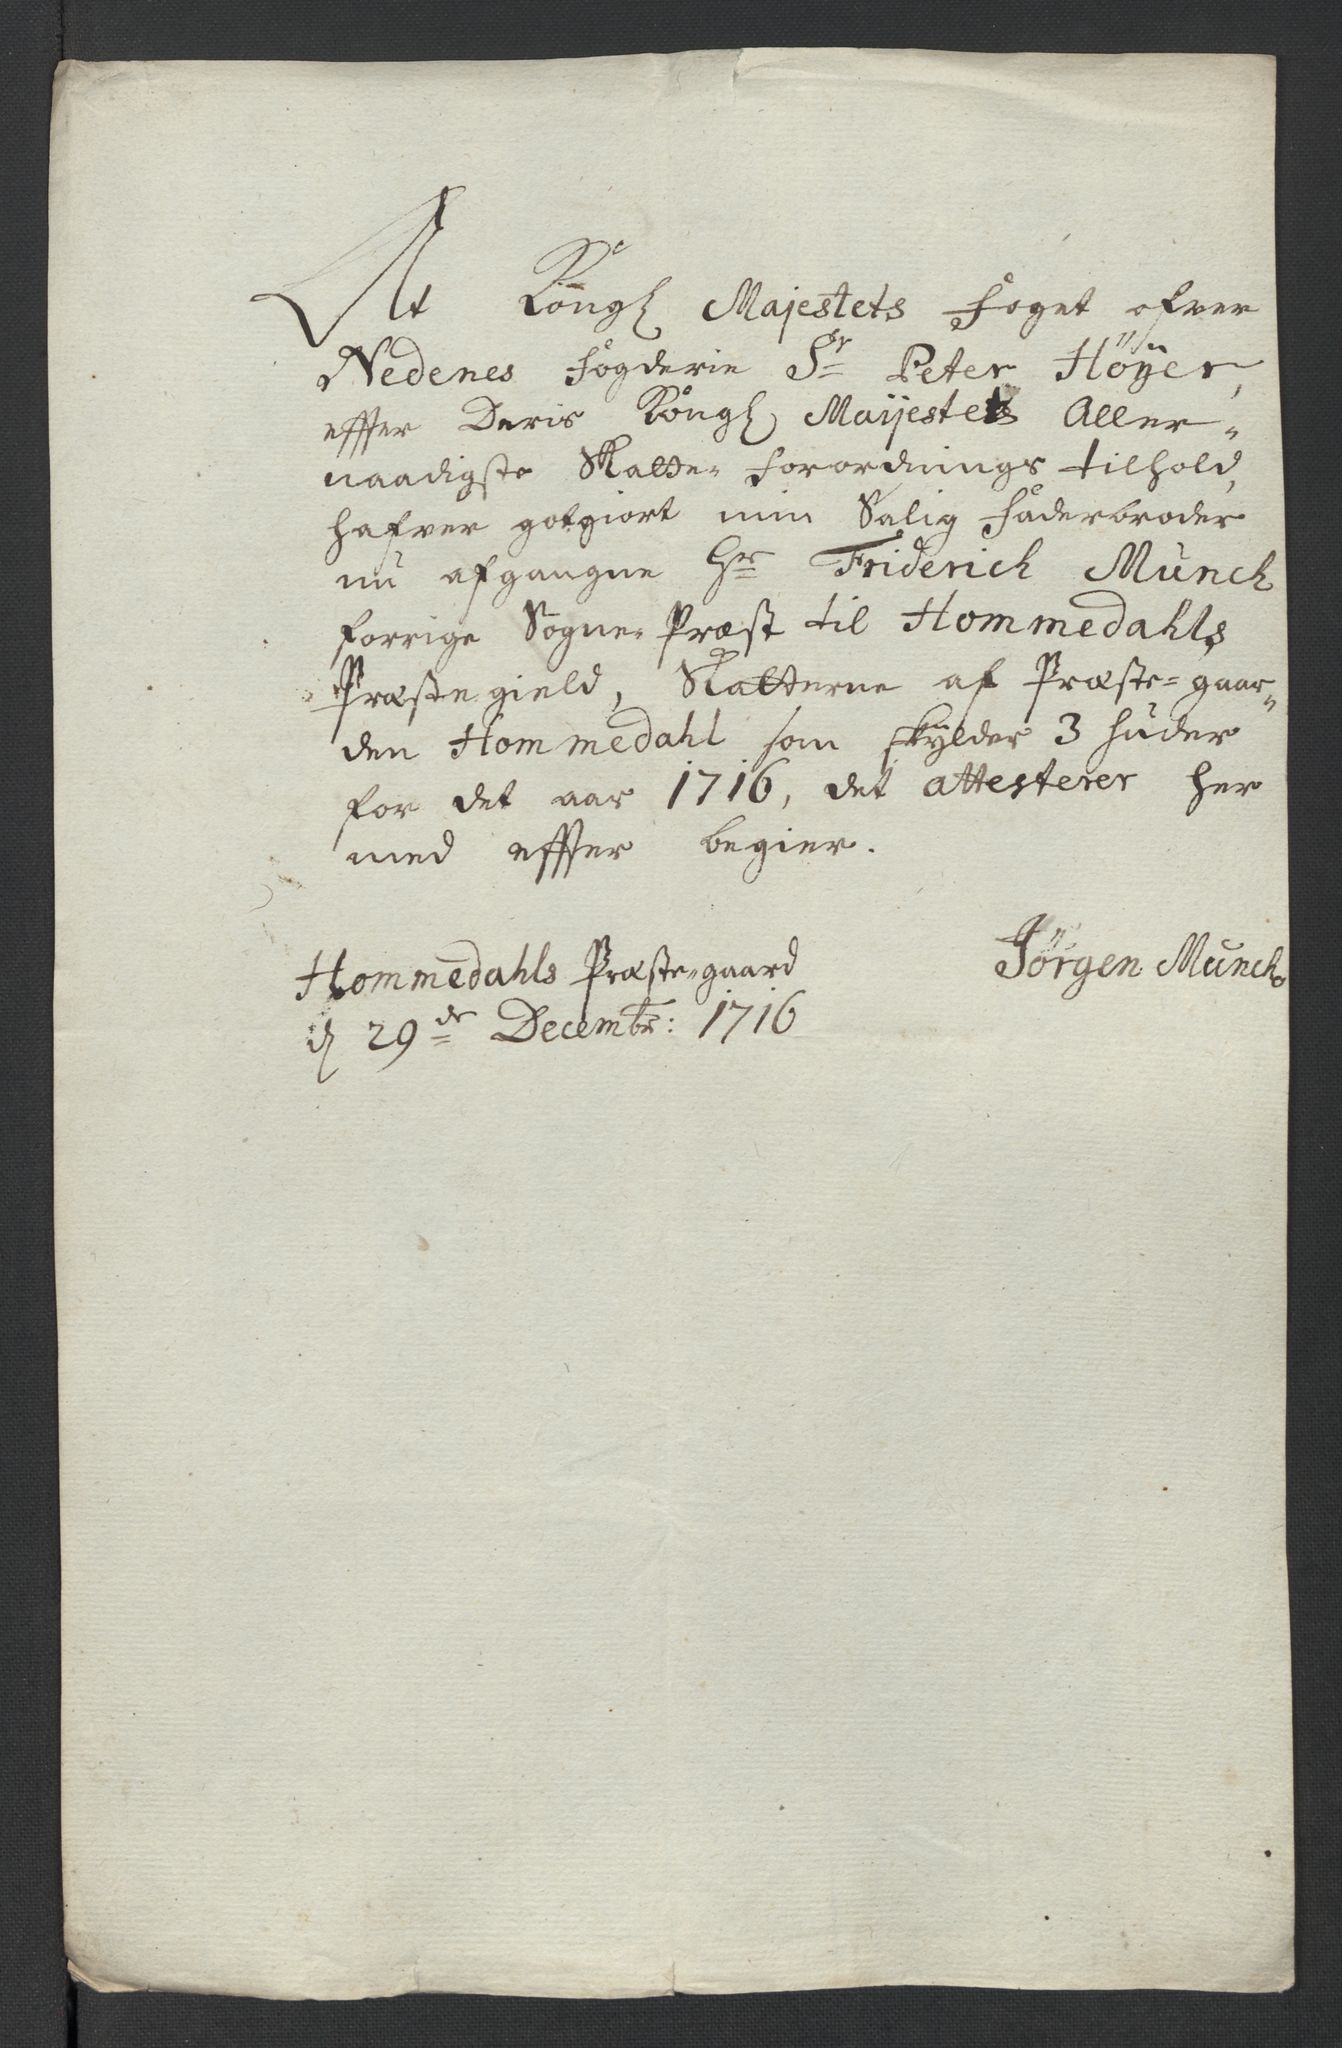 At Kongl Majestets Foget ofver
Nedenes Fogderie Sr Peter Höÿer,
effter Deris Kongl Maijestets Aller-
naadigste Skatte-Forordnings tilhold,
hafver gotgiort min Salig Faderbroder
nu afgangne Hr Friderich Munch
forrige Sogne-Præst til Hommedahls
Præstegield, Skatterne af Præste-gaar-
den Hommedahl som skÿlder 3 huder
for det aar 1716, det attesterer her
med effter begier.
Hommedahls Præste-gaard
d 29de Decembr: 1716
Jörgen Munch